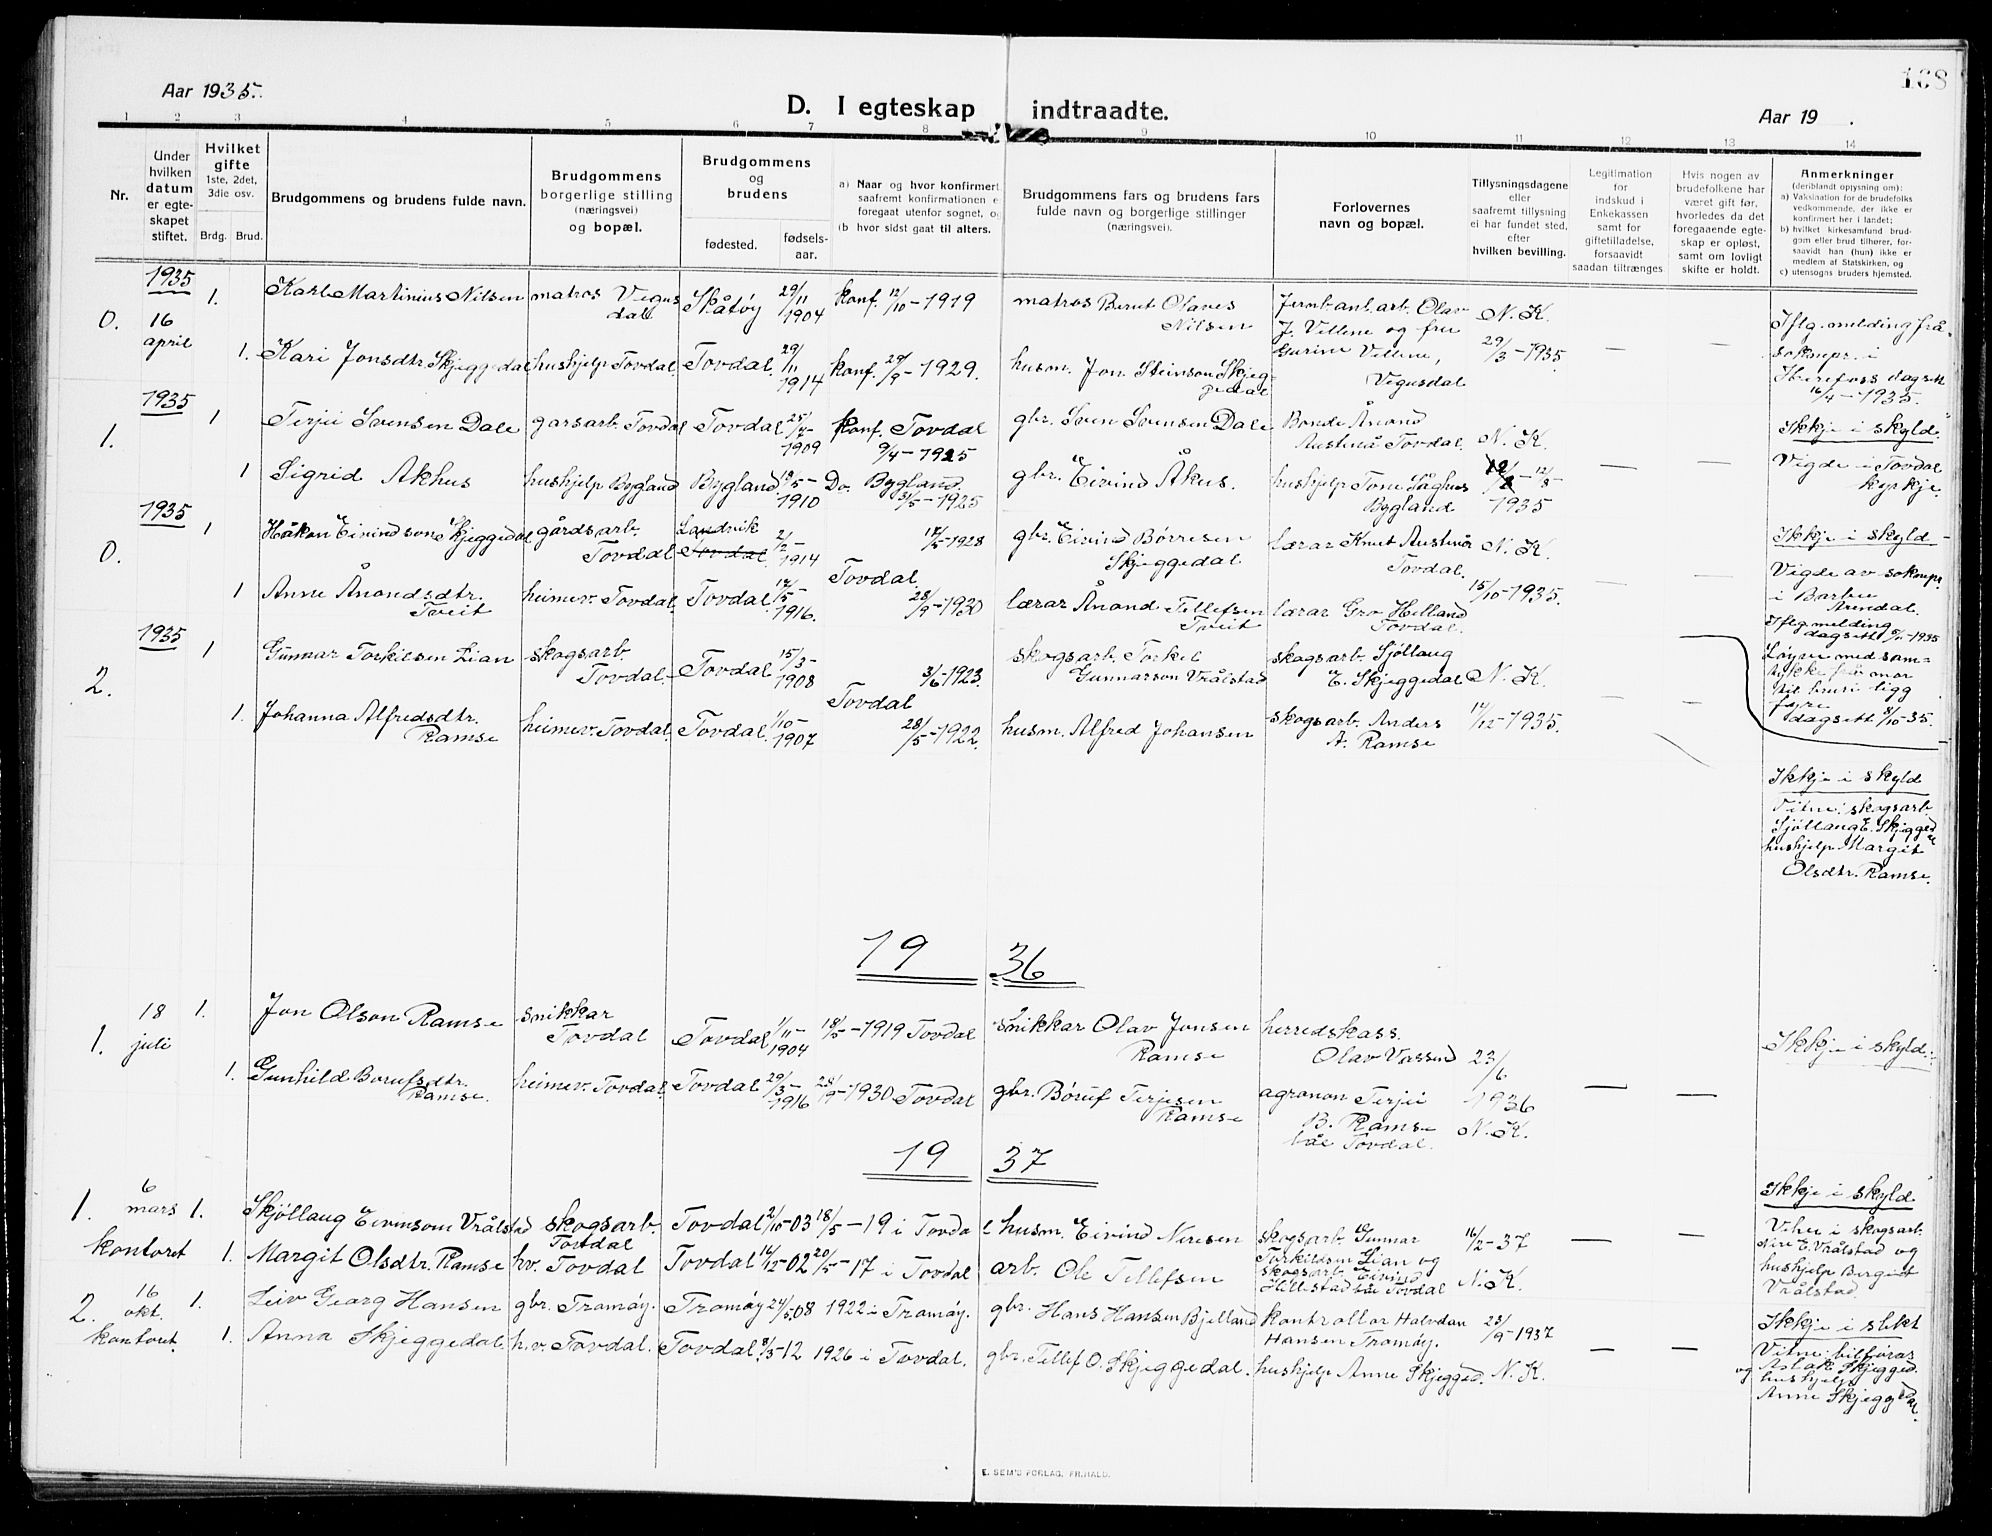 168
Aar 1935.
D. I egteskap indtraadte.
Aar 19 .
1 2 3 4 5 6 7 8 9 10 11 12 13 14
Nr.
Under hvilken datum er egteskapet stiftet.
Hvilket gifte
1ste, 2det, 3die osv.
Brdg. Brud.
Brudgommens og brudens fulde navn.
Brudgommens borgerlige stilling (næringsvei) og bopæl.
Brudgommens og brudens
fødested.
fødselsaar.
a) Naar og hvor konfirmert, saafremt konfirmationen e foregaat utenfor sognet, og
b) hvor sidst gaat til alters.
Brudgommens fars og brudens fars fulde navn og borgerlige stillinger (næringsvei).
Forlovernes navn og bopæl.
Tillysningsdagene eller saafremt tillysning ei har fundet sted, efter hvilken bevilling.
Legitimation for indskud i Enkekassen samt for giftetilladelse, forsaavidt saadan tiltrænges
Hvis nogen av brudefolkene har været gift før, hvorledes da det foregaaende egteskap er opløst, samt om lovligt skifte er holdt.
Anmerkninger
(deriblandt opysning om):
a) Vaksination for de brudefolks vedkommende, der ikke er konfirmert her i landet;
b) hvilket kirkesamfund brudgom eller brud tilhører, forsaavidt han (hun) ikke er medlem af Statskirken, og
c) utensogns bruders hjemsted.
1935
0. 16 april
1. Karl Martinius Nilsen matros Vegusdal Skåtøy 29/11 1904 konf. 12/10-1919 matros Berut Olaves Nilsen Jernb.anl.arb. Olav J. Vellene og fru Gurine Vellene, Vegusdal N. K. 29/3-1935
1. Kari Jonsdtr. Skjeggedal hushjelp Tovdal. Tovdal. 29/11 1914 konf. 29/9-1929. husm. Jon Steinson Skjeggedal
— —
Iflg. melding frå soknepr. i Herefoss dagsett 16/4-1935.
1935
1.
1 Terjei Svensen Dale garsarb. Tovdal Tovdal 25/7- 1909 Konf. Tovdal 9/4-1925 gbr. Sven Svensen Dale Bonde Ånond Austenå Tovdal. N. K.
1 Sigrid Akhus hushjelp Bygland Bygland 1910 Do. Bygland. 31/5-1925 gbr. Eivind Åkus. hushjelp Tone Såghus Bygland 1935
— —
Ikkje i skyld.
Vigde i Tovdal kyrkje.
1935
0.
1 Håkon Eivindson Skjeggedal gårdsarb. Tovdal Landvik Tovdal 2/2- 1914 17/5-1928 gbr. Eivind Børresen Skjeggedal lærar Knut Austenå Tovdal. N. K.
Tovdal.
1 Anne Ånondsdtr. Tveit heimev. Tovdal. Tovdal. 17/5- 1916. 28/9-1930 lærar Ånond Tellefsen Tveit lærar Gro Helland Tovdal. 15/10-1935.
— —
Ikkje i skyld -
Vigde av soknepr. i Barbu Arendal.
Iflg. melding dagsett -1935
1935
2.
1 Gunnar Torkilsen Lian skogsarb. Tovdal. Tovdal 15/3- 1908 3/6-1923. skogsarb. Torkel Gunnarson Vrålstad skogsarb. Sjøllaug E. Skjeggedal N. K.
Tovdal
1. Johanna Alfredsdtr. Ramse heimev. Tovdal. Tovdal. 1/10- 1907 28/5-1922. husm. Alfred Johansen skogsarb. Anders A. Ramse 14/12-1935.
— —
Løyve med samtykke frå mor til brur ligg fyre dagsett 8/10-35.
Ikkje i skyld
Vitne: skogsarb. Sjøllaug E. Skjeggedal hushjelp Margit Olsdtr. Ramse.
19 36
1. 18 juli
1. Jon Olson Ramse snikkar Tovdal Tovdal 1/11- 1904 18/5-1919 Tovdal snikkar Olav Jonsen Ramse herredskass. Olav Vassend 23/6 1936 N. K.
1. Gunhild Borufsdtr. Ramse. heimev. Tovdal. Tovdal 29/3- 1916 28/9-1930 Tovdal gbr. Børuf Terjesen Ramse agronom Terjei B. Ramse båe Tovdal.
— —
Ikkje i skyld.
19 37
1. 6 mars kontoret
1. Skjøllaug Eivinsom Vrålstad skogsarb. Tovdal Tovdal 2/10-03 18/5-19 i Tovdal husm. Eivind Niresen skogsarb. Gunnar Torkildsen Lian og skogsarb. Eivind Hillestad båe Tovdal 16/2-37 N. K.
1. Margit Olsdtr. Ramse hv. Tovdal Tovdal 14/12-02 20/5-17 i Tovdal arb. Ole Tellefsen
— —
Ikkje i skyld
Vitner: skogsarb. Nire E. Vrålstad og hushjelp Bergit Vrålstad
2. 16 okt. kontoret
1. Leiv Georg Hansen gbr. Tromøy. Tromøy 24/5 08 1922 i Tromøy. gbr. Hans Hansen Bjelland kontrollør Halvdan Hansen Tromøy. 23/9-1937
1. Anna Skjeggedal h.v. Tovdal. Tovdal 8/5-12 1926 i Tovdal. gbr. Tellef O. Skjeggedal. hushjelp Anne Skjegged. N. K.
— —
Ikkje i slekt
Vitne: bilførar Aslak Skjegged. og hushjelp Anne Skjeggedal.
E. SEM'S FORLAG, FR.HALD.